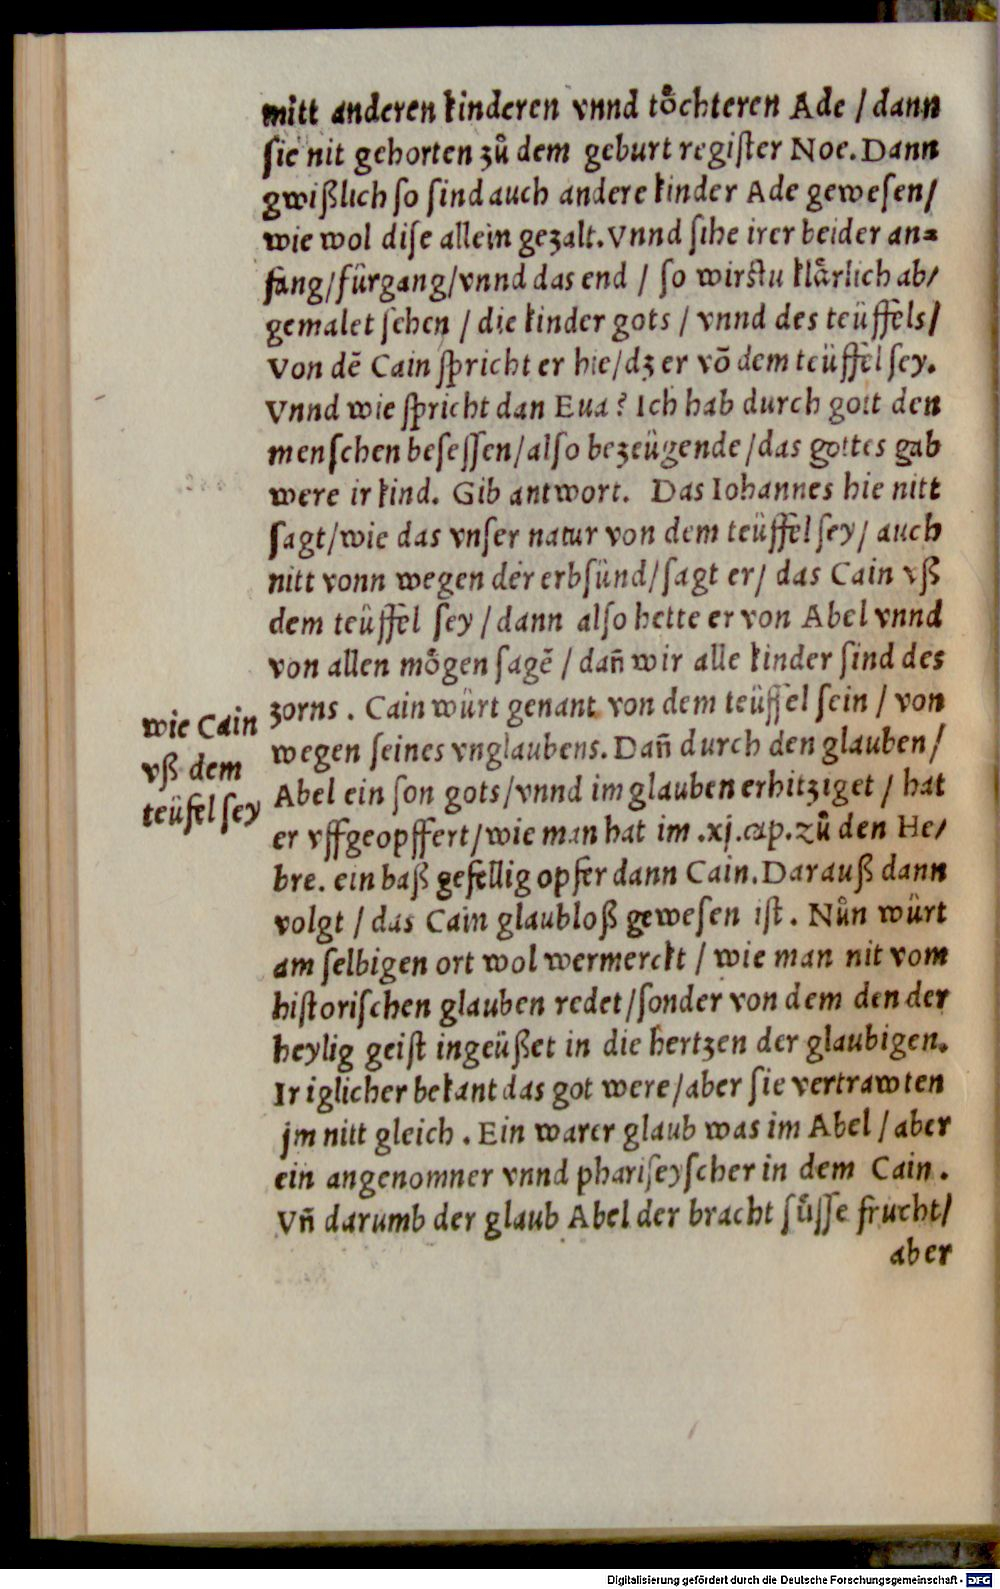 mitt anderen kinderen vnnd toͤchteren Ade / dann
ſie nit gehorten zuͦ dem geburt regiſter Noe. Dann
gwißlich ſo ſind auch andere kinder Ade geweſen/
wie wol diſe allein gezalt. Vnnd ſihe irer beider an⸗
fang/fürgang/vnnd das end / ſo wirſtu klaͤrlich ab/
gemalet ſehen / die kinder gots / vnnd des teüffels/
Von dē Cain ſpricht er hie/dz er vō dem teüffel ſey.
Vnnd wie ſpricht dan Eua? Ich hab durch gott den
menſchen beſeſſen/alſo bezeügende/das gottes gab
were ir kind. Gib antwort. Das Iohannes hie nitt
ſagt/wie das vnſer natur von dem teüffel ſey/ auch
nitt vonn wegen der erbſünd/ſagt er/ das Cain vß
dem teüffel ſey / dann alſo hette er von Abel vnnd
von allen moͤgen ſagē / dañ wir alle kinder ſind des
zorns . Cain würt genant von dem teüffel ſein / von
wegen ſeines vnglaubens. Dañ durch den glauben/
Abel ein ſon gots/vnnd im glauben erhitziget / hat
er vffgeopffert/wie man hat im .xj.cap.zuͦ den He/
bre. ein baß gefellig opfer dann Cain. Darauß dann
volgt / das Cain glaubloß geweſen iſt . Nuͦn würt
am ſelbigen ort wol wermerckt / wie man nit vom
hiſtoriſchen glauben redet/ſonder von dem den der
heylig geiſt ingeüßet in die hertzen der glaubigen.
Ir iglicher bekant das got were/aber ſie vertrawten
jm nitt gleich . Ein warer glaub was im Abel / aber
ein angenomner vnnd phariſeyſcher in dem Cain .
Vñ darumb der glaub Abel der bracht ſuͤſſe frucht/
aber
wie Cain
vß dem
teüfel ſey
Digitalisierung gefördert durch die Deutsche Forschungsgemeinschaft - DFG